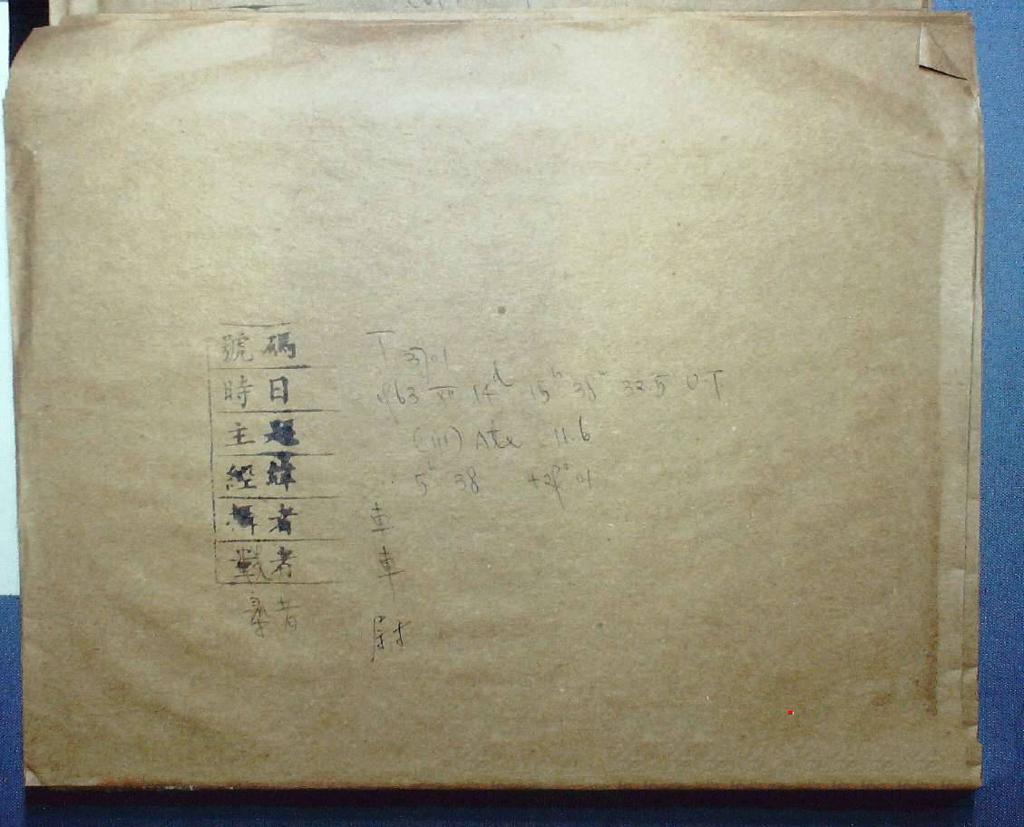 號碼 T 3701
時日 1963 XII 14ᵈ 15ʰ 38ᵐ 32.5 U.T
主題 (111) Ate 11.6
經緯 5ʰ 38 +28° 01
者 車
者 車
者 尉